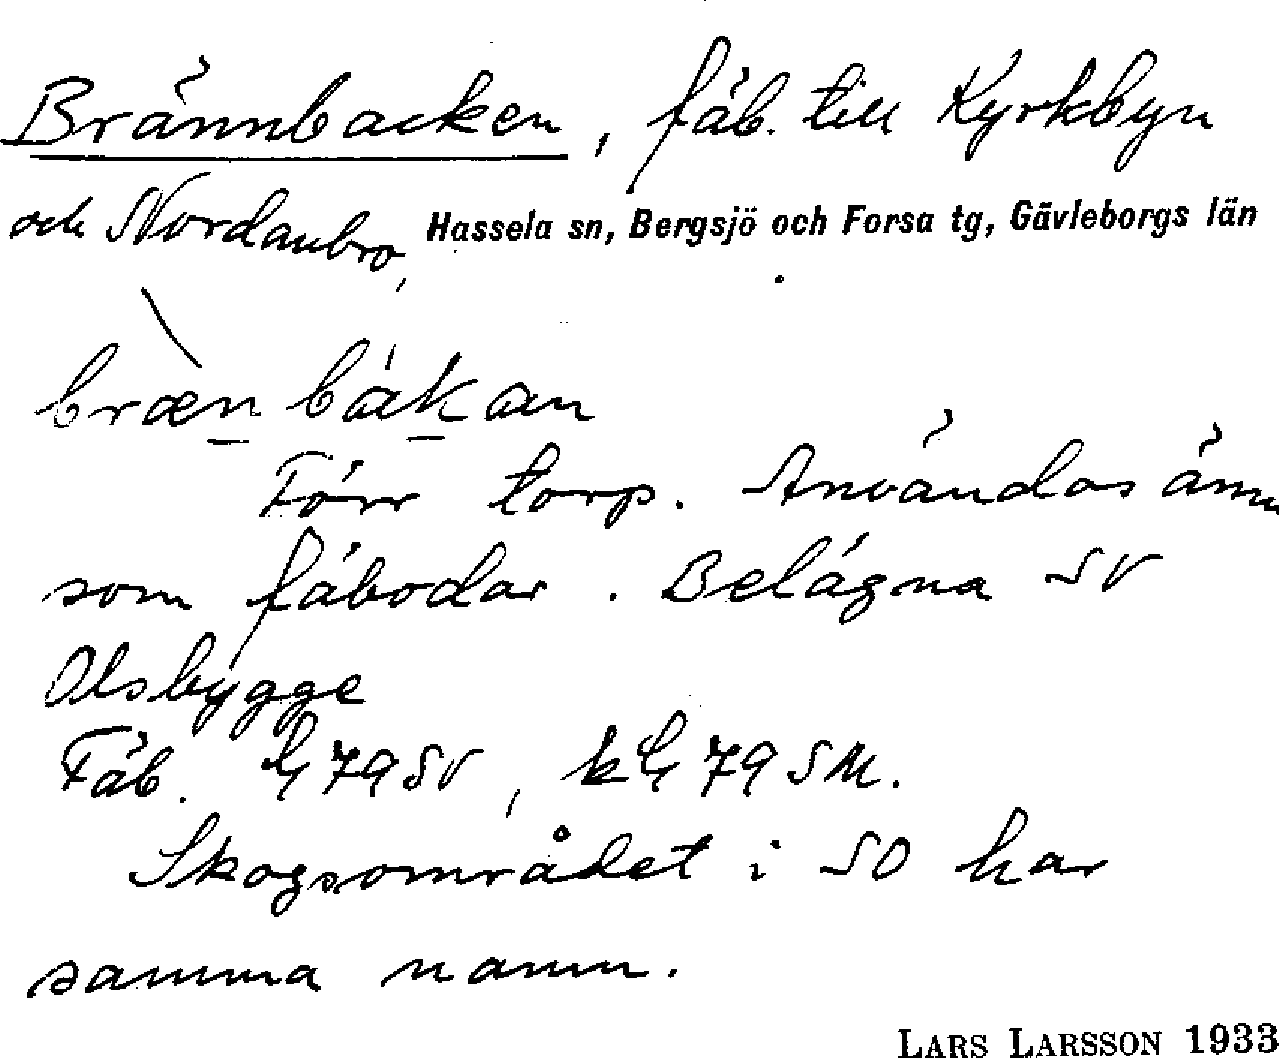 Brännbacken, fäb. till Kyrkbyn
och Nordanbro, Hassela sn, Bergsjö och Forsa tg, Gävleborgs län
bræn bákan
Förr torp. Användas ännu
som fäbodar. Belägna SV
Olsbygge
Fäb. 79 SV, 79 SM.
Skogsområdet i SO har
samma namn.
LARS LARSSON 1933